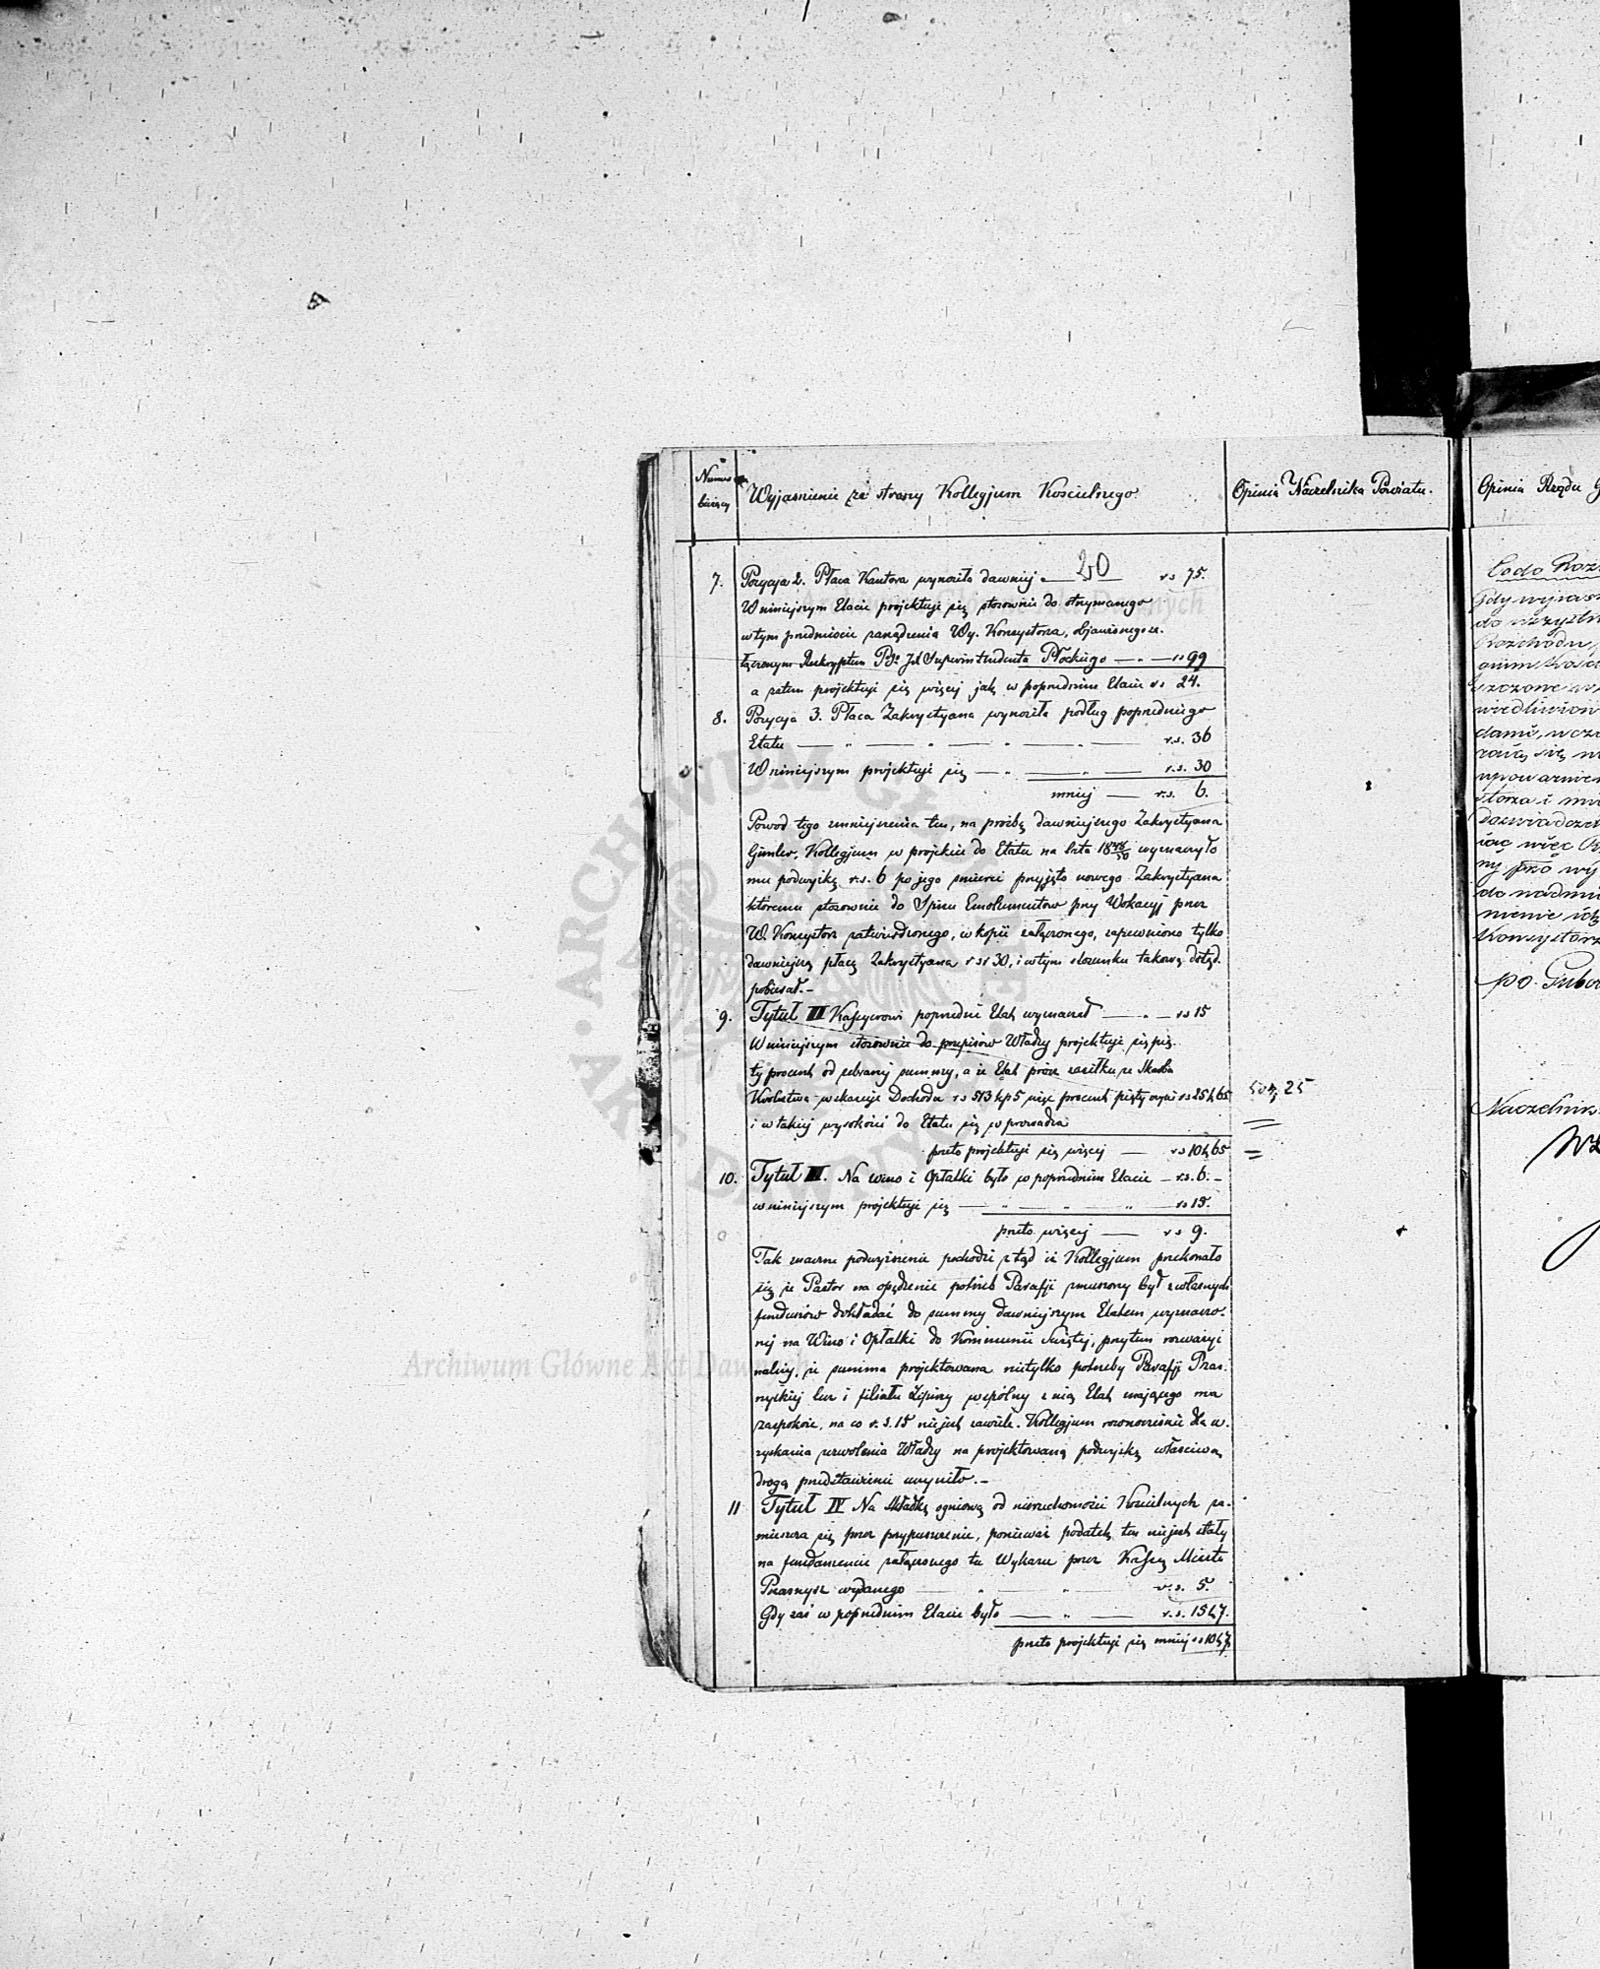 Numer bieżący
Wyjasnienie ze strony Kollegjum Koscielnego.
Opinia Naczelnika Powiatu.
7. Pozycja 2. Płaca Kantora wynosiła dawniej 20 rs 75.
W niniejszym Etacie projektuje się stosownie do otrzymanego
w tym przedmiocie zarządzenia Wy. Konsystorza, objawionego za
łączonym Reskryptem Superintendenta Płockiego — " — " 99
a zatem projektuje się więcej jak w poprzednim Etacie rs 24.
8. Pozycja 3. Płaca Zakrystyana wynosiła podług poprzedniego
Etatu — " — " — " — " — r.s. 36
W niniejszym projektuje się — " — " — r.s. 30
mniej — r.s. 6.
Powod tego zmniejszenia ten, na prośbę dawniejszego Zakrystyana
Kollegjum w projekcie do Etatu na lata 1848/50 wyznaczyło
mu podwyżkę r.s. 6 po jego smierci przyjęto nowego Zakrystyana
któremu stosownie do Spisu Emolumentow przy Wokacyj przez
W. Konsystorz zatwierdzonego, w kopii załączonego, zapewniono tylko
dawniejszą płacę Zakrystyana rsr 30, i w tym stosunku takową dotąd
pobierał.–
9. Tytuł II Kassyerowi poprzedni Etat wyznaczał — " — rs 15
W niniejszym stosownie do przepisow Władzy projektuje się pię
ty procent od zebranej summy, a że Etat prócz zasiłku ze Skarbu
Krolestwa wskazuje Dochodu rs 513 k 5 więc procent piąty czyni rs 25 k 65
i w takiej wysokości do Etatu się wprowadza
przeto projektuje się więcej — rs 10 k 65
25
10. Tytuł III. Na wino i Opłatki było w poprzednim Etacie – r.s. 6.–
w niniejszym projektuje się — " — " — " — rs 15.
przeto więcej — rs 9.
Tak znaczne podwyższenie pochodzi ztąd iż Kollegjum przekonało
się że Pastor na opędzenie potrzeb Parafji zmuszony był z własnych
funduszów dokładać do summy dawniejszym Etatem wyznaczo-
nej na Wino i Opłatki do Kommunii Swiętej, przytem rozważyć
należy, że summa projektowana nietylko potrzeby Parafji Pras-
nyskiej lecz i filiału Lipiny wspólny z nią Etat mającego ma
zaspokoić, na co r.s. 15 niejest zawiele. Kollegjum rownocześnie dla u-
zyskania zezwolenia Władzy na projektowaną podwyżkę właściwą
drogą przedstawienie uczyniło.–
11 Tytuł IV Na składkę ogniową od nieruchomości Koscielnych za-
mieszcza się przez przypuszczenie, ponieważ podatek ten niejest stały
na fundamencie załączonego tu Wykazu przez Kassę Miasta
Prasnysz wydanego — " — " — r.s. 5.
Gdy zaś w poprzednim Etacie było — " — r.s. 15 k 7.
przeto projektuje się mniej rs 10 k 7
Opinia Rządu G
Gdy
Rozchodu
po. Guber
Naczelnik
Archiwum Główne Akt Dawnych
ARCHIWUM GŁÓWNE AKT DAWNYCH